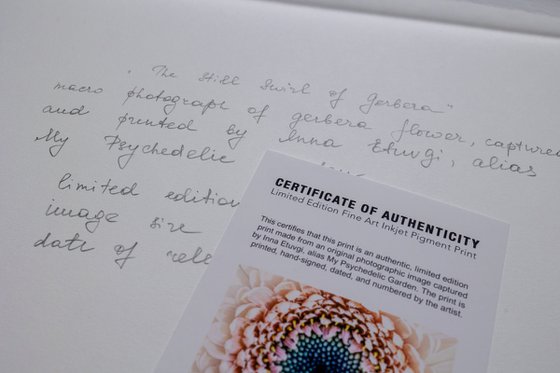 "The Still Swirl of Gerbera"
macro photograph of gerbera flower, captured
and printed by Inna Etuvgi, alias
My Psychedelic
limited edition
image size
date of
CERTIFICATE OF AUTHENTICITY
Limited Edition Fine Art Inkjet Pigment Print
This certifies that this print is an authentic, limited edition
print made from an original photographic image captured
by Inna Etuvgi, alias My Psychedelic Garden. The print is
printed, hand-signed, dated, and numbered by the artist.